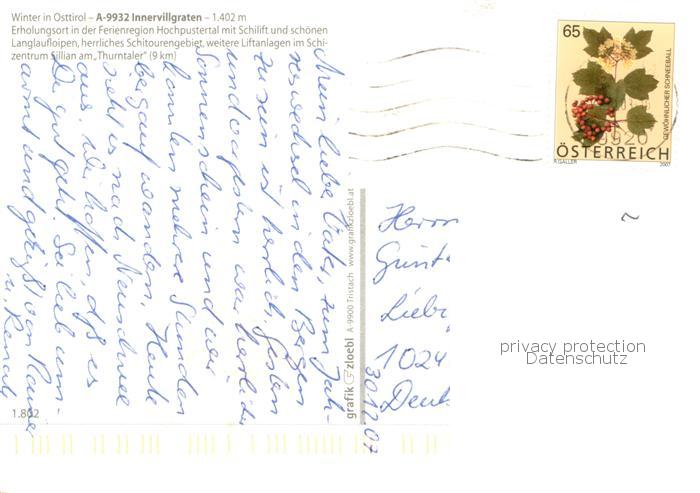 Winter in Osttirol – A-9932 Innervillgraten – 1.402 m
Erholungsort in der Ferienregion Hochpustertal mit Schilift und schönen
Langlaufloipen, herrliches Schitourengebiet, weitere Liftanlagen im Schi-
zentrum Sillian am „Thurntaler" (9 km)
Mein lieber Vater, zum Jah-
reswechsel in den Bergen
zu sein ist herrlich, gestern
und ogstern war herrlicher
Sonnenschein und wir
konnten mehrere Stunden
bergauf wandern. Heute
sieht es nach Neuschnee
aus. Wir hoffen, daß es
Dir gut geht. Sei lieb um-
armt und gegrüßt von Rainer
u. Renate
1.802
grafik zloebl A-9900 Tristach www.grafikzloebl.at
65
GEWÖHNLICHER SCHNEEBALL
9920
ÖSTERREICH
R.GALLER 2007
Herrn
Günt
Liebe
1024
Deut
301207
privacy protection
Datenschutz